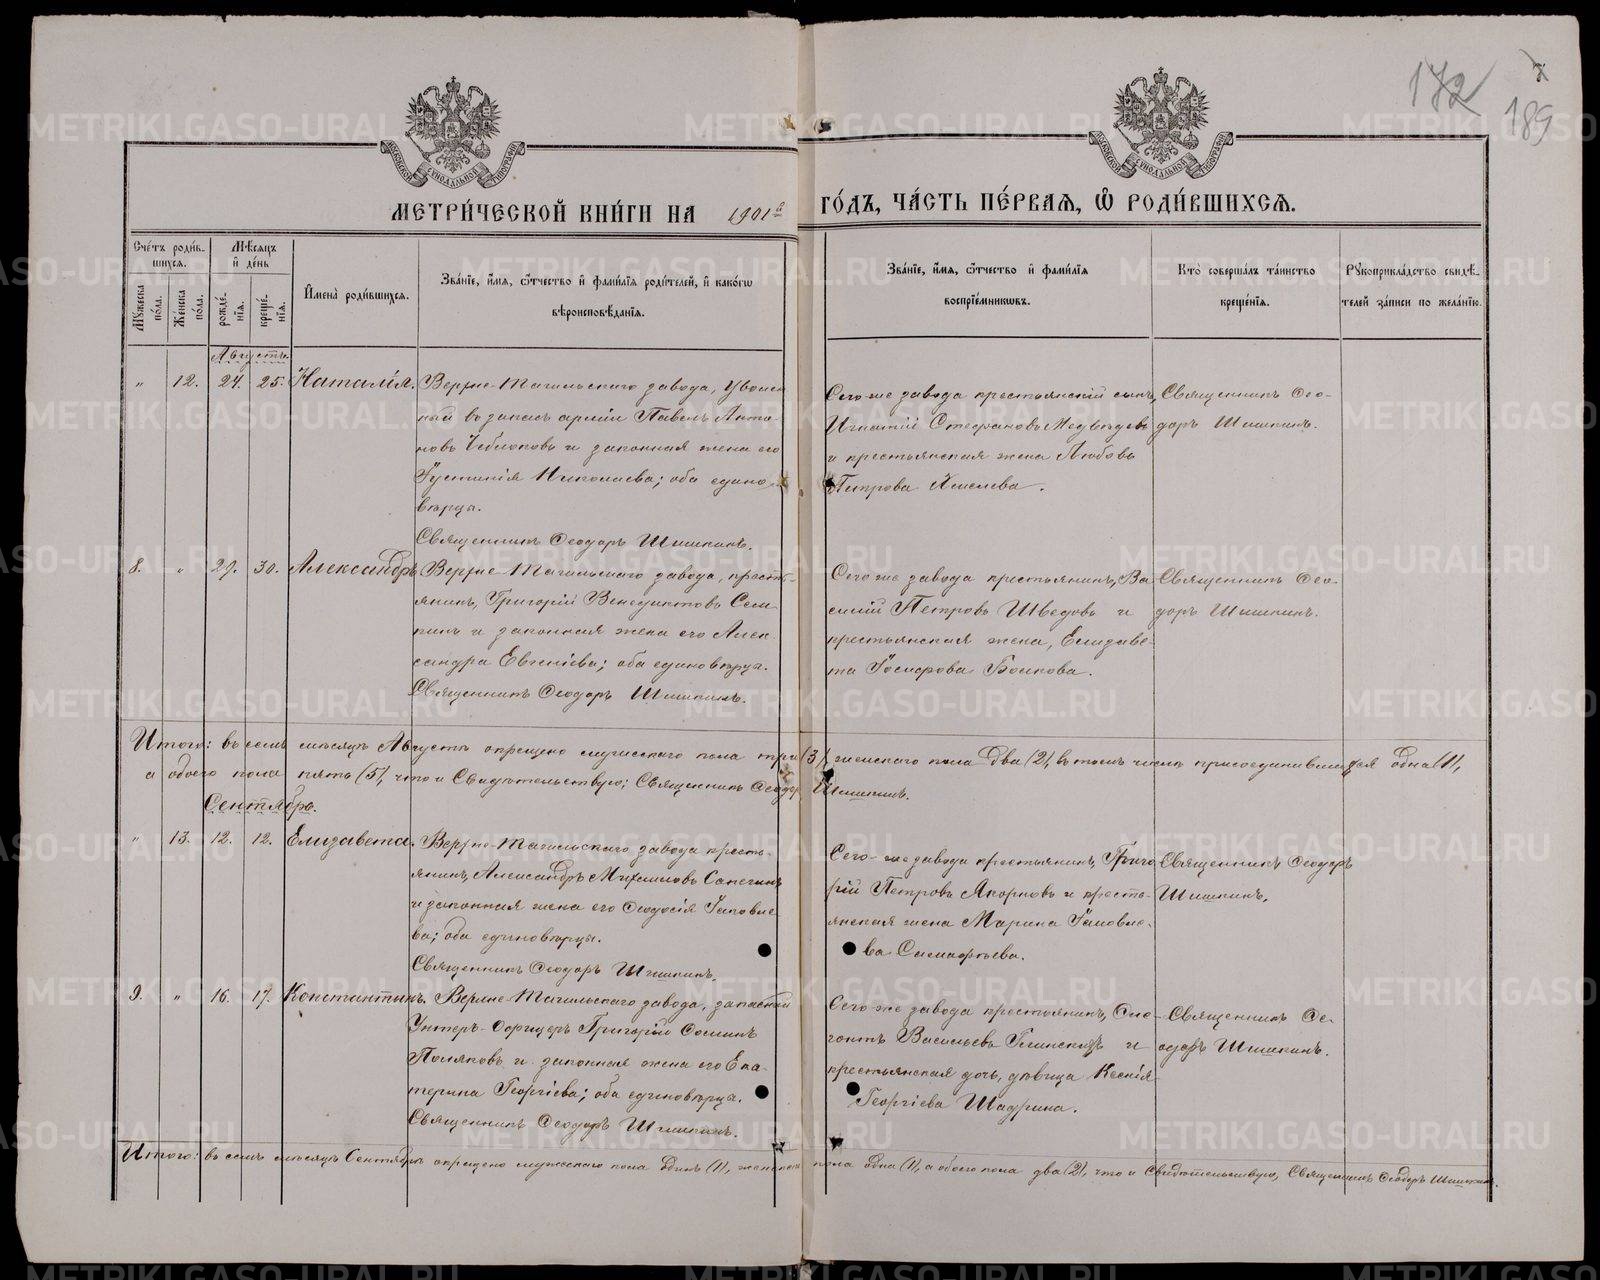 172
189
МОСКОВСКОЙ СѴНОДАЛЬНОЙ ТИПОГРАФІИ
МОСКОВСКОЙ СѴНОДАЛЬНОЙ ТИПОГРАФІИ
МЕТРИ́ЧЕСКОЙ КНИ́ГИ НА 1901й ГО́ДЪ, ЧА́СТЬ ПЕ́РВАѦ, Ѽ РОДИ́ВШИХСѦ.
Сче́тъ роди́в-
шихсѧ.
Мѣ́сѧцъ
и҆ де́нь
Мꙋ́жеска по́ла.
Же́нска по́ла.
рожде́-
нїѧ.
креще́-
нїѧ.
И҆мена̀ роди́вшихсѧ.
Зва́нїе, и҆́мѧ, ѻ҆́тчество и҆ фами́лїѧ роди́телей, и҆ како́гѡ
вѣроисповѣ́данїѧ.
Зва́нїе, и҆́мѧ, ѻ҆́тчество и҆ фами́лїѧ
воспрїе́мникѡвъ.
Кто̀ соверша́лъ та́инство
креще́нїѧ.
Рꙋкоприкла́дство свидѣ́-
телей за́писи по жела́нїю.
Августъ.
" 12. 24. 25. Наталія.
Верхне-Тагильскаго завода, уволен
ный въ запасъ арміи Павелъ Анто-
новъ и законная жена его
Іустинія Николаева; оба едино-
вѣрца.
Священникъ Ѳеодоръ Шишкинъ.
Сего-же завода крестьянскій сынъ,
Игнатій Стефановъ Медвѣдевъ
и крестьянская жена Любовь
Петрова Киселева.
Священникъ Ѳео-
доръ Шишкинъ.
8. " 29. 30. Александръ
Верхне-Тагильскаго завода, кресть-
янинъ, Григорій Венедиктовъ Сем-
кинъ и законная жена его Алек-
сандра Евгеніева; оба единовѣрца.
Священникъ Ѳеодоръ Шишкинъ.
Сего-же завода крестьянинъ, Ва-
силій Петровъ Шведовъ и
крестьянская жена, Елизаве-
та Іосифова Боикова.
Священникъ Ѳео-
доръ Шишкинъ.
Итого: въ семъ мѣсяцѣ Августѣ окрещено мужескаго пола три (3), женскаго пола два (2), въ томъ числѣ присоединившаяся одна (1),
а обоего пола пять (5), что и Свидѣтельствую; Священникъ Ѳеодоръ Шишкинъ.
Сентябрь.
" 13. 12. 12. Елизавета.
Верхне-Тагильскаго завода кресть-
янинъ, Александръ Михаиловъ Сапегинъ
и законная жена его Ѳеодосія Іаковле-
ва; оба единовѣрцы.
Священникъ Ѳеодоръ Шишкинъ,
Сего-же завода крестьянинъ, Григо
рій Петровъ и кресть-
янская жена Марина Іаковле-
ва
Священникъ Ѳеодоръ
Шишкинъ,
9. " 16. 17. Константинъ.
Верхне-Тагильскаго завода, запасный
Унтеръ-Офицеръ Григорій Ѳоминъ
Поляковъ и законная жена его Ека-
терина Георгіева; оба единовѣрца.
Священникъ Ѳеодоръ Шишкинъ.
Сего-же завода крестьянинъ,
Васильевъ Глинскихъ и
крестьянская дочь, дѣвица Ксенія
Георгіева Шадрина.
Священникъ Ѳе-
одоръ Шишкинъ.
Итого: въ семъ мѣсяцѣ Сентябрѣ окрещено мужескаго пола одинъ (1), женскаго пола одна (1), а обоего пола два (2), что и Свидѣтельствую, Священникъ Ѳеодоръ Шишкинъ.
METRIKI.GASO-URAL.RU